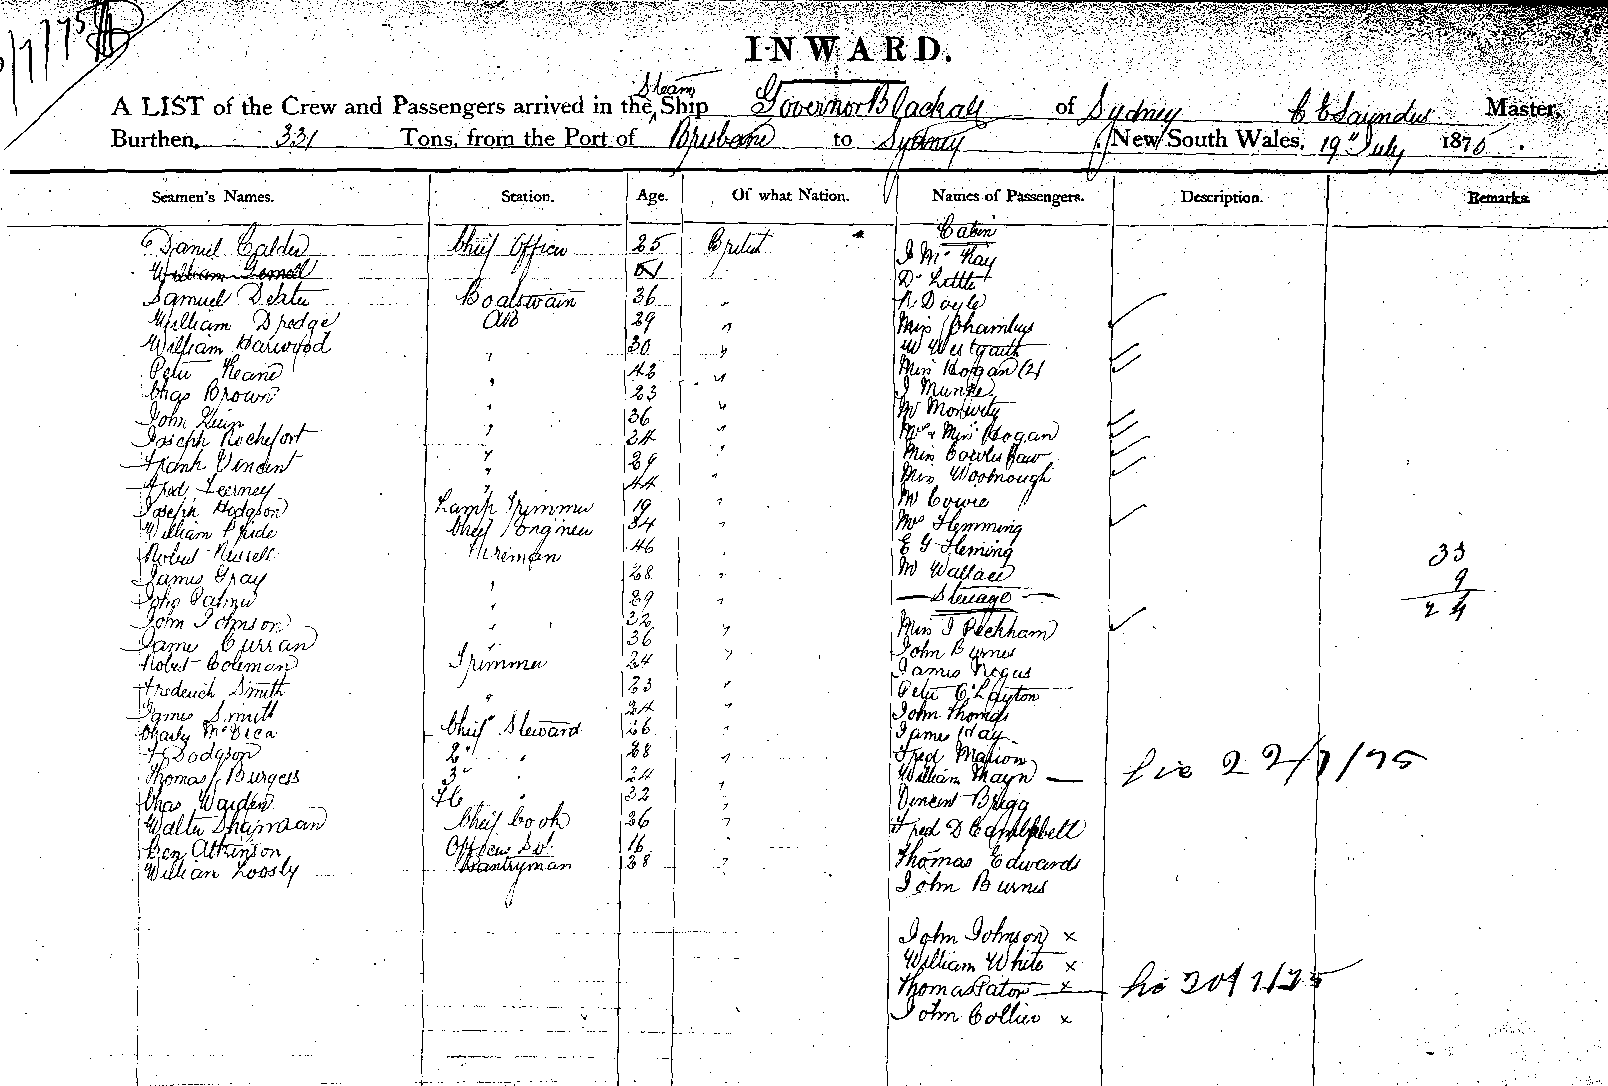 INWARD.
A LIST of the Crew and Passengers arrived in the Steam Ship Governor Blackall of Sydney C E Saunders Master,
Burthen, 331 Tons, from the Port of Brisbane to Sydney New South Wales, 19th July 1875.
Seamen's Names. Station. Age. Of what Nation. Names of Passengers. Description. Remarks.
Cabin
Daniel Calder Chief Officer 25 British J Mc Kay
William
Dr Little
Samuel Boatswain 36 " R Doyle
William Dredge AB 29 " Miss Chambers
William Harwood " 30 " W Westgarth
Peter Keane " 42 " Miss Hogan (2)
Chas Brown " 23 " J
John " 36 " Mr Moriarty
Joseph Rochefort " 24 " Mrs & Miss Hogan
Frank Vincent " 29 " Miss
Fred " 44 " Miss Woolnough
Joseph Hodgson Lamp Trimmer 19 " Mr Cowie
William Pride Chief Engineer 34 " Mrs Flemming
Robert Russell Fireman 46 " E G Fleming
James Gray " 28 " Mr Wallace
33
9
24
John Palmer " 29 " Steerage
John Johnson " 32 " Miss J Peckham
James Curran " 36 " John Burnes
Robert Coleman Trimmer 24 " James Rogus
Frederick Smith " 23 " Peter Clayton
James Smith " 24 " John Thomas
Charles Chief Steward 26 " James Hay
F Dodgson 2" " 28 " Fred Marion
Thomas J Burgess 3" " 24 " William Mayn — 22/7/75
Chas Warden " 32 " Vincent Brigg
Walter Shapman Chief Cook 26 " Fred D Campbell
Ben Atkinson Officers St. 16
William Loosly Pantryman 28 " Thomas Edwards
John Burnes
John Johnson x
William White x
Thomas Pator x 20/7/75
John Collier x